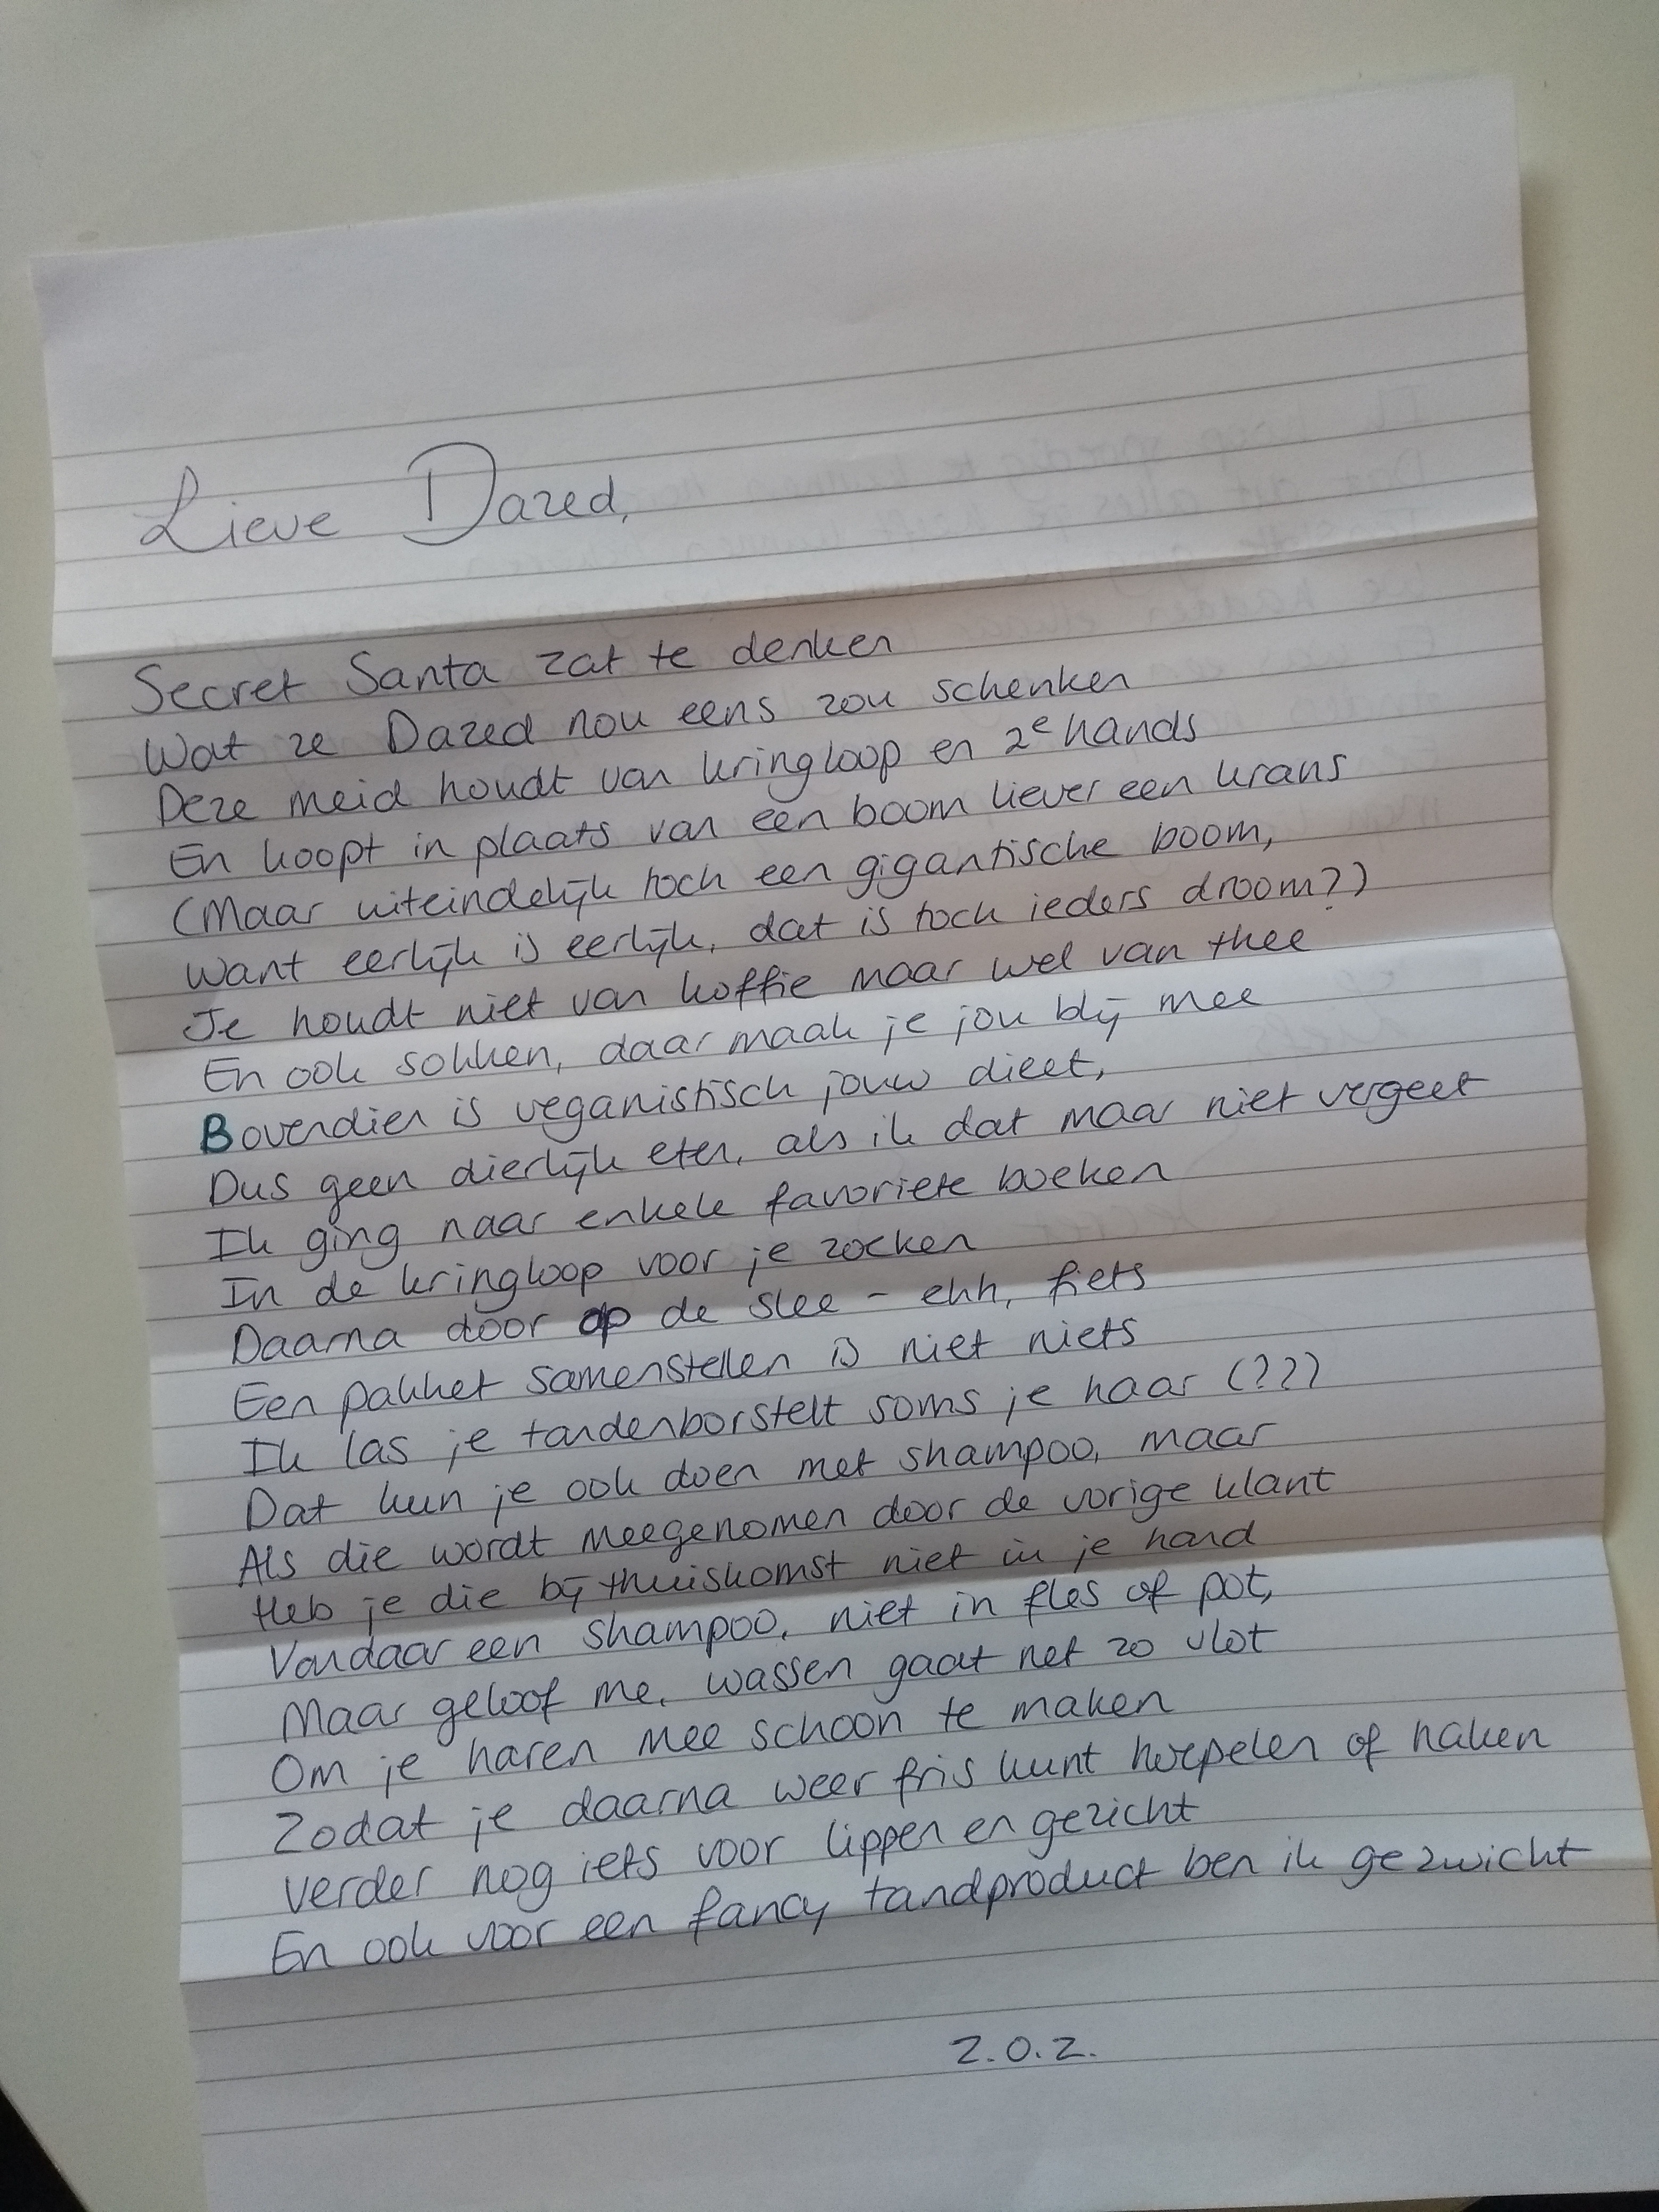 Lieve Dazed,
Secret Santa zat te denken
Wat ze Dazed nou eens zou schenken
Deze meid houdt van kringloop en 2e hands
En koopt in plaats van een boom liever een krans
(Maar uiteindelijk toch een gigantische boom,
Want eerlijk is eerlijk, dat is toch ieders droom?)
Je houdt niet van koffie maar wel van thee
En ook sokken, daar maak je jou blij mee
Bovendien is veganistisch jouw dieet,
Dus geen dierlijk eten, als ik dat maar niet vergeet
Ik ging naar enkele favoriete boeken
In de kringloop voor je zoeken
Daarna door op de slee - ehh, fiets
Een pakket samenstellen is niet niets
Ik las je tandenborstelt soms je haar (???)
Dat kun je ook doen met shampoo, maar
Als die wordt meegenomen door de vorige klant
Heb je die bij thuiskomst niet in je hand
Vandaar een shampoo, niet in fles of pot,
Maar geloof me, wassen gaat net zo vlot
Om je haren mee schoon te maken
Zodat je daarna weer fris kunt hoepelen of haken
Verder nog iets voor lippen en gezicht
En ook voor een fancy tandproduct ben ik gezwicht
Z.O.Z.